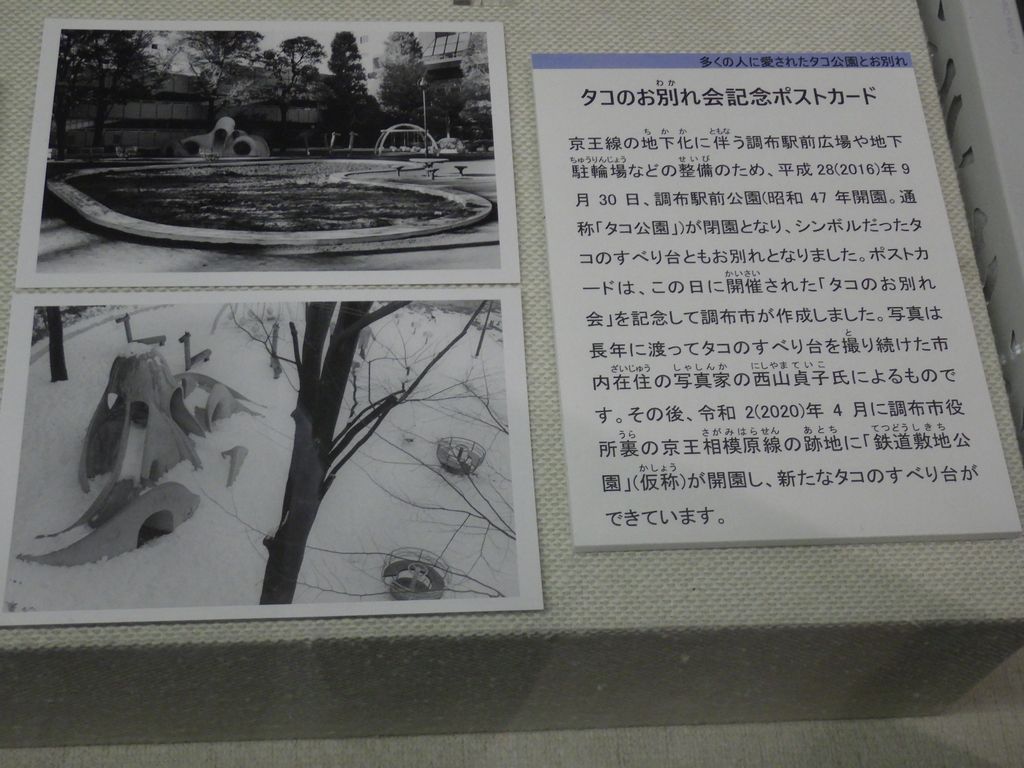 多くの人に愛されたタコ公園とお別れ
わか
タコのお別れ会記念ポストカード
ちかか ともな
京王線の地下化に伴う調布駅前広場や地下
ちゅうりんじょう せいび
駐輪場などの整備のため、平成 28(2016)年 9
月 30 日、調布駅前公園(昭和 47 年開園。通
称「タコ公園」)が閉園となり、シンボルだったタ
コのすべり台ともお別れとなりました。ポストカ
かいさい
ードは、この日に開催された「タコのお別れ
会」を記念して調布市が作成しました。写真は
と
長年に渡ってタコのすべり台を撮り続けた市
ざいじゅう しゃしんか にしやまていこ
内在住の写真家の西山貞子氏によるもので
す。その後、令和 2(2020)年 4 月に調布市役
うら さがみはらせん あとち てつどうしきち
所裏の京王相模原線の跡地に「鉄道敷地公
かしょう
園」(仮称)が開園し、新たなタコのすべり台が
できています。